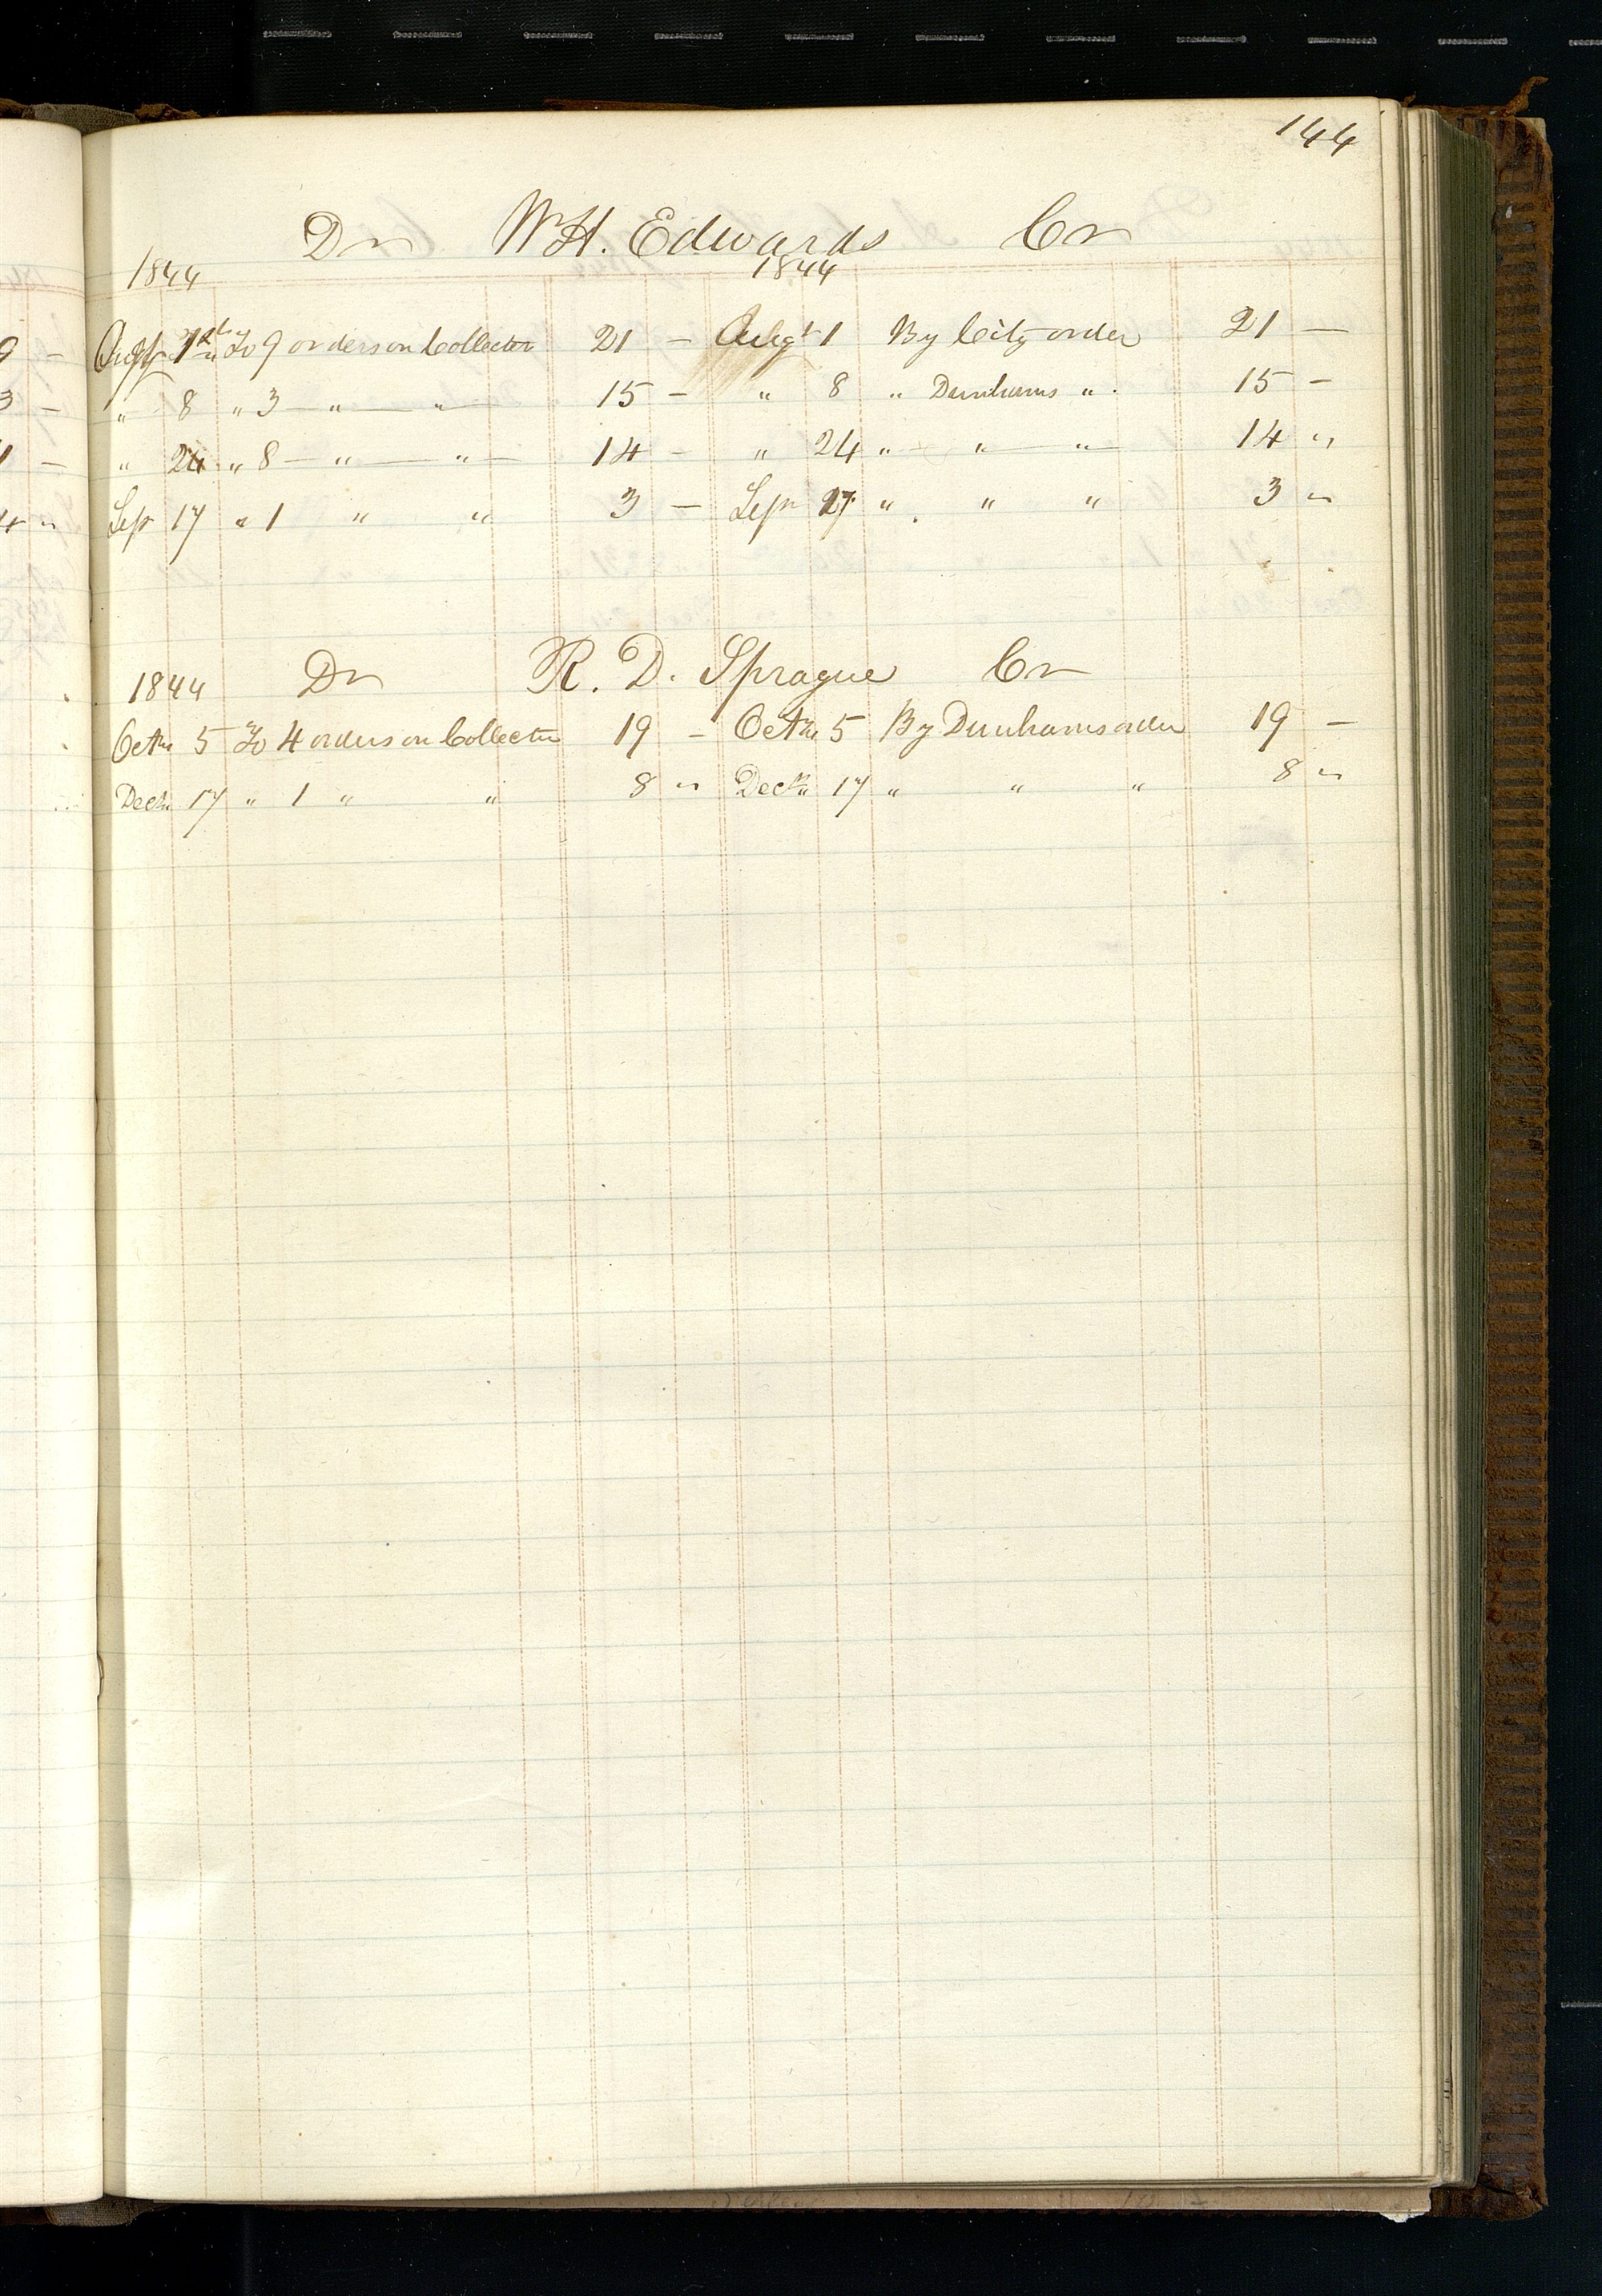 144
Dr W.H. Edwards Cr
1844 1844
Augt 1st To 9 orders on Collector 21 — Augt 1 By City order 21 —
" 8 " 3 — " — " — 15 — " 8 " Dunhams " 15 —
" 24 " 8 — " — " — 14 — " 24 " — " — " — 14 "
Sep 17 " 1 " " 3 — Sep 17 " " " 3 "
1844 Dr R. D. Sprague Cr
Octr 5 To 4 orders on Collector 19 — Octr 5 By Dunhams order 19 —
Decr 17 " 1 " " 8 " Decr 17 " " " 8 "